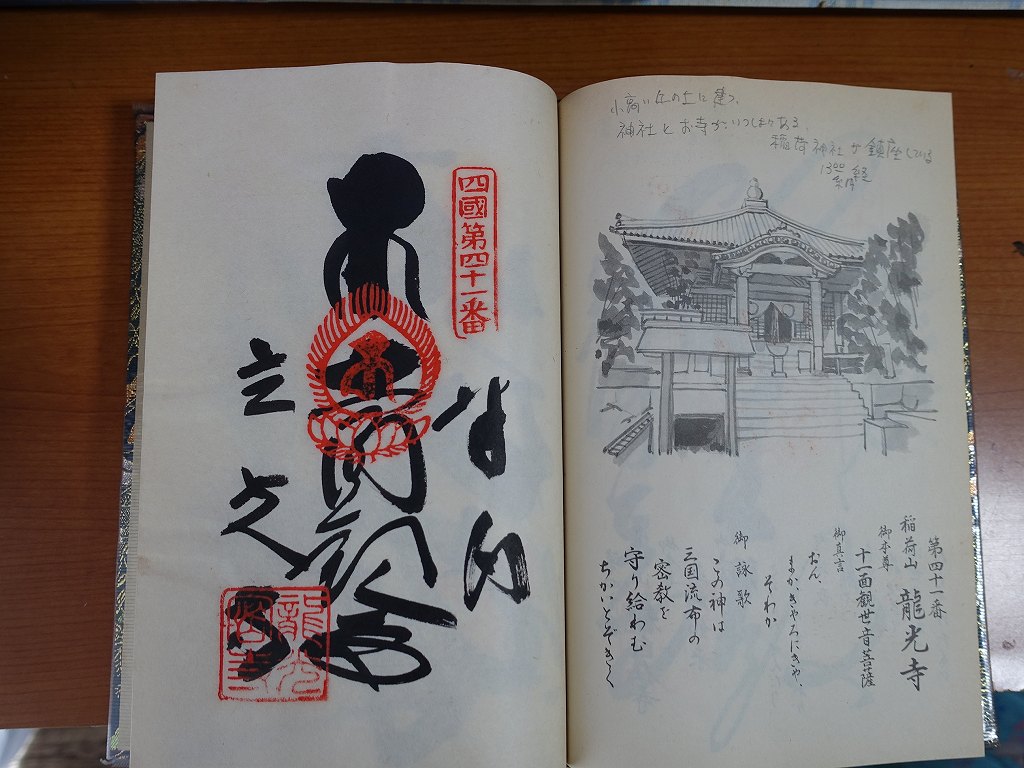 小高い丘の上に建つ、
神社とお寺がいっしょにある
稲荷神社が鎮座している
13:00
納経
第四十一番
稲荷山 龍光寺
御本尊
十一面観世音菩薩
御真言
おん、
まかきゃろにきゃ、
そわか
御詠歌
この神は
三国流布の
密教を
守り給わむ
ちかいとぞきく
四國第四十一番
奉
龍光寺